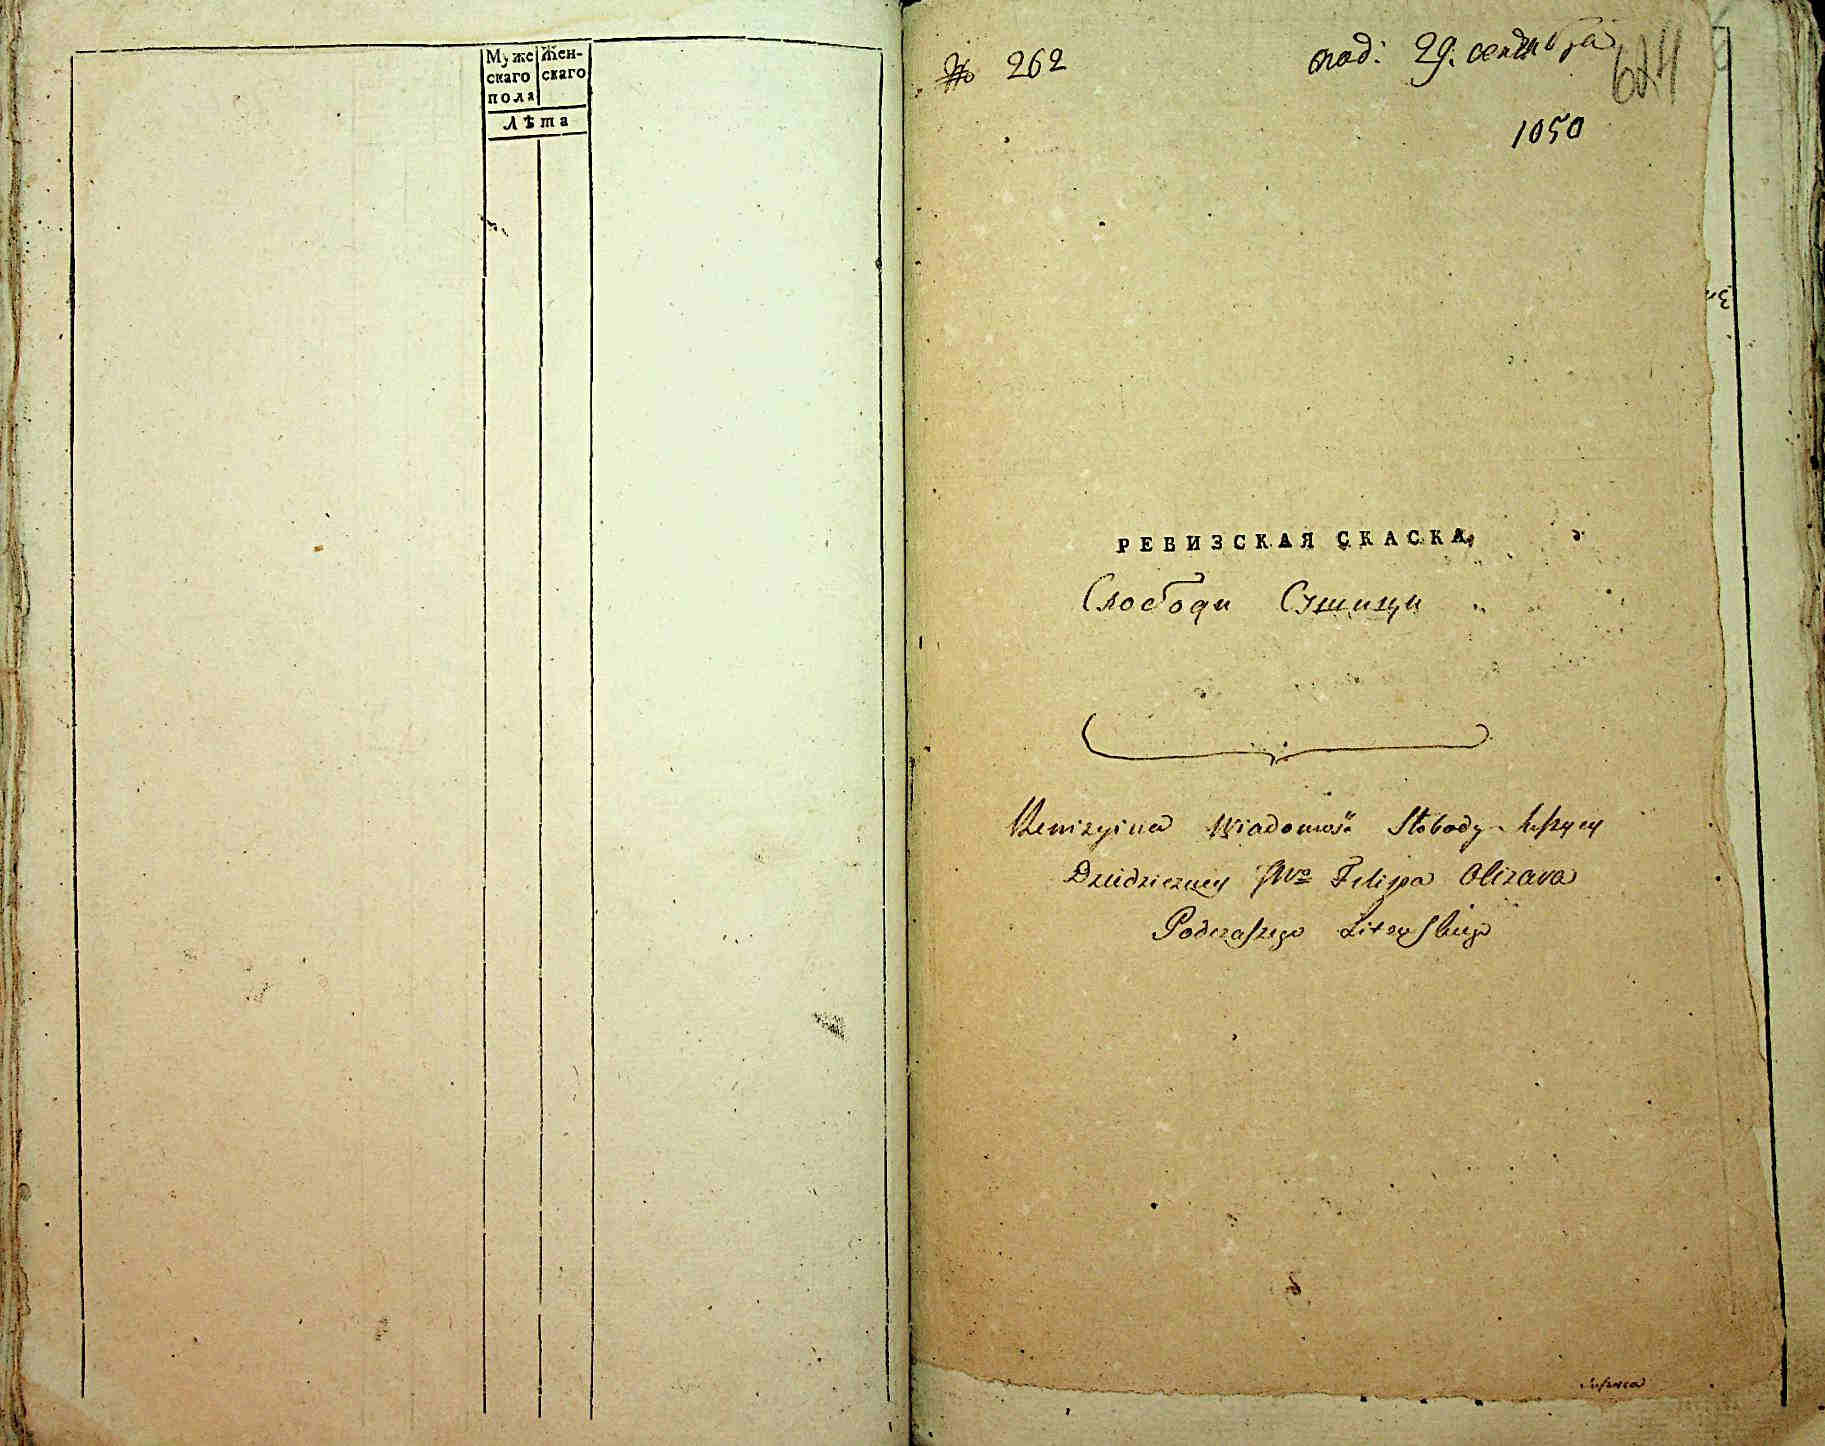 Муже Жен-
скаго скаго
пола
Лѣта
№ 262 под: 29. сентября
624
1050
РЕВИЗСКАЯ СКАСКА,
Слободи Сушици
Rewizyina Wiadomość Słobody
Dziedziczney JWo Filipa Olizara
Podczaszego Litewskiego